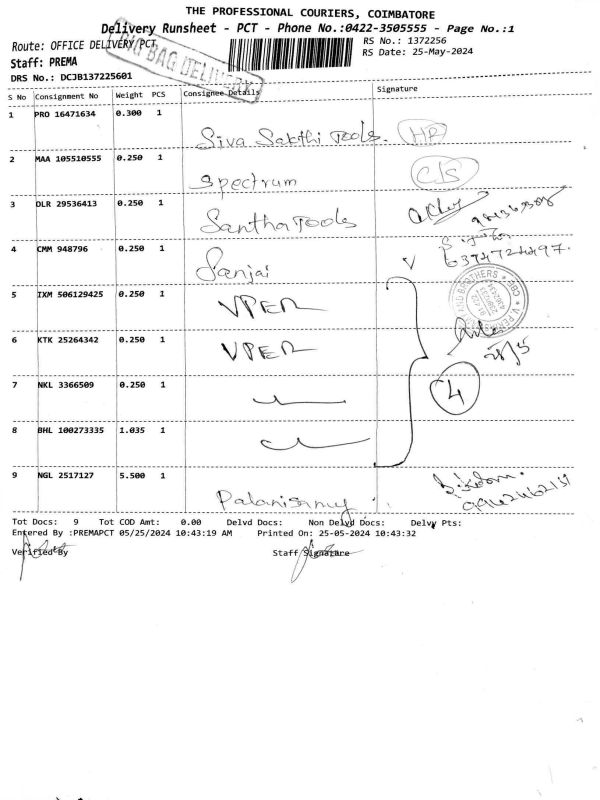 THE PROFESSIONAL COURIERS, COIMBATORE
Delivery Runsheet - PCT - Phone No.:0422-3505555 - Page No.:1
Route: OFFICE DELIVERY PCT
RS No.: 1372256
Staff: PREMA
RS Date: 25-May-2024
BIG BAG DELIVERY
DRS No.: DCJB137225601
S No Consignment No Weight PCS Consignee Details Signature
1 PRO 16471634 0.300 1 Siva Sakthi Tools. HP
2 MAA 105510555 0.250 1 Spectrum C/S
3 DLR 29536413 0.250 1 Santha Tools
4 CMM 948796 0.250 1 Sanjai 6374724497.
5 IXM 506129425 0.250 1 VPER
6 KTK 25264342 0.250 1 VPER
25/5
7 NKL 3366509 0.250 1
4
8 BHL 100273335 1.035 1
9 NGL 2517127 5.500 1
Tot Docs: 9 Tot COD Amt: 0.00 Delvd Docs: Non Delvd Docs: Delvy Pts:
Entered By :PREMAPCT 05/25/2024 10:43:19 AM Printed On: 25-05-2024 10:43:32
Verified By Staff Signature